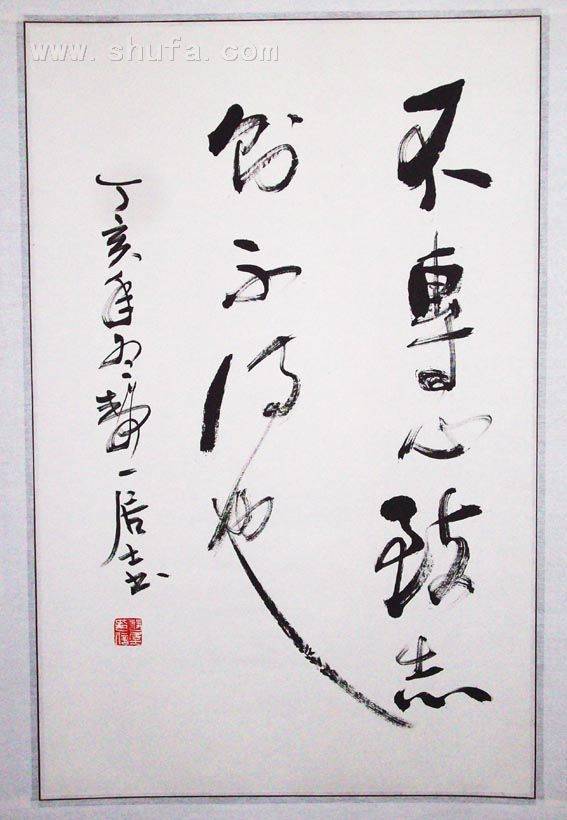 www.shufa.com
不專心致志
則不得也
丁亥年冬静一居士书